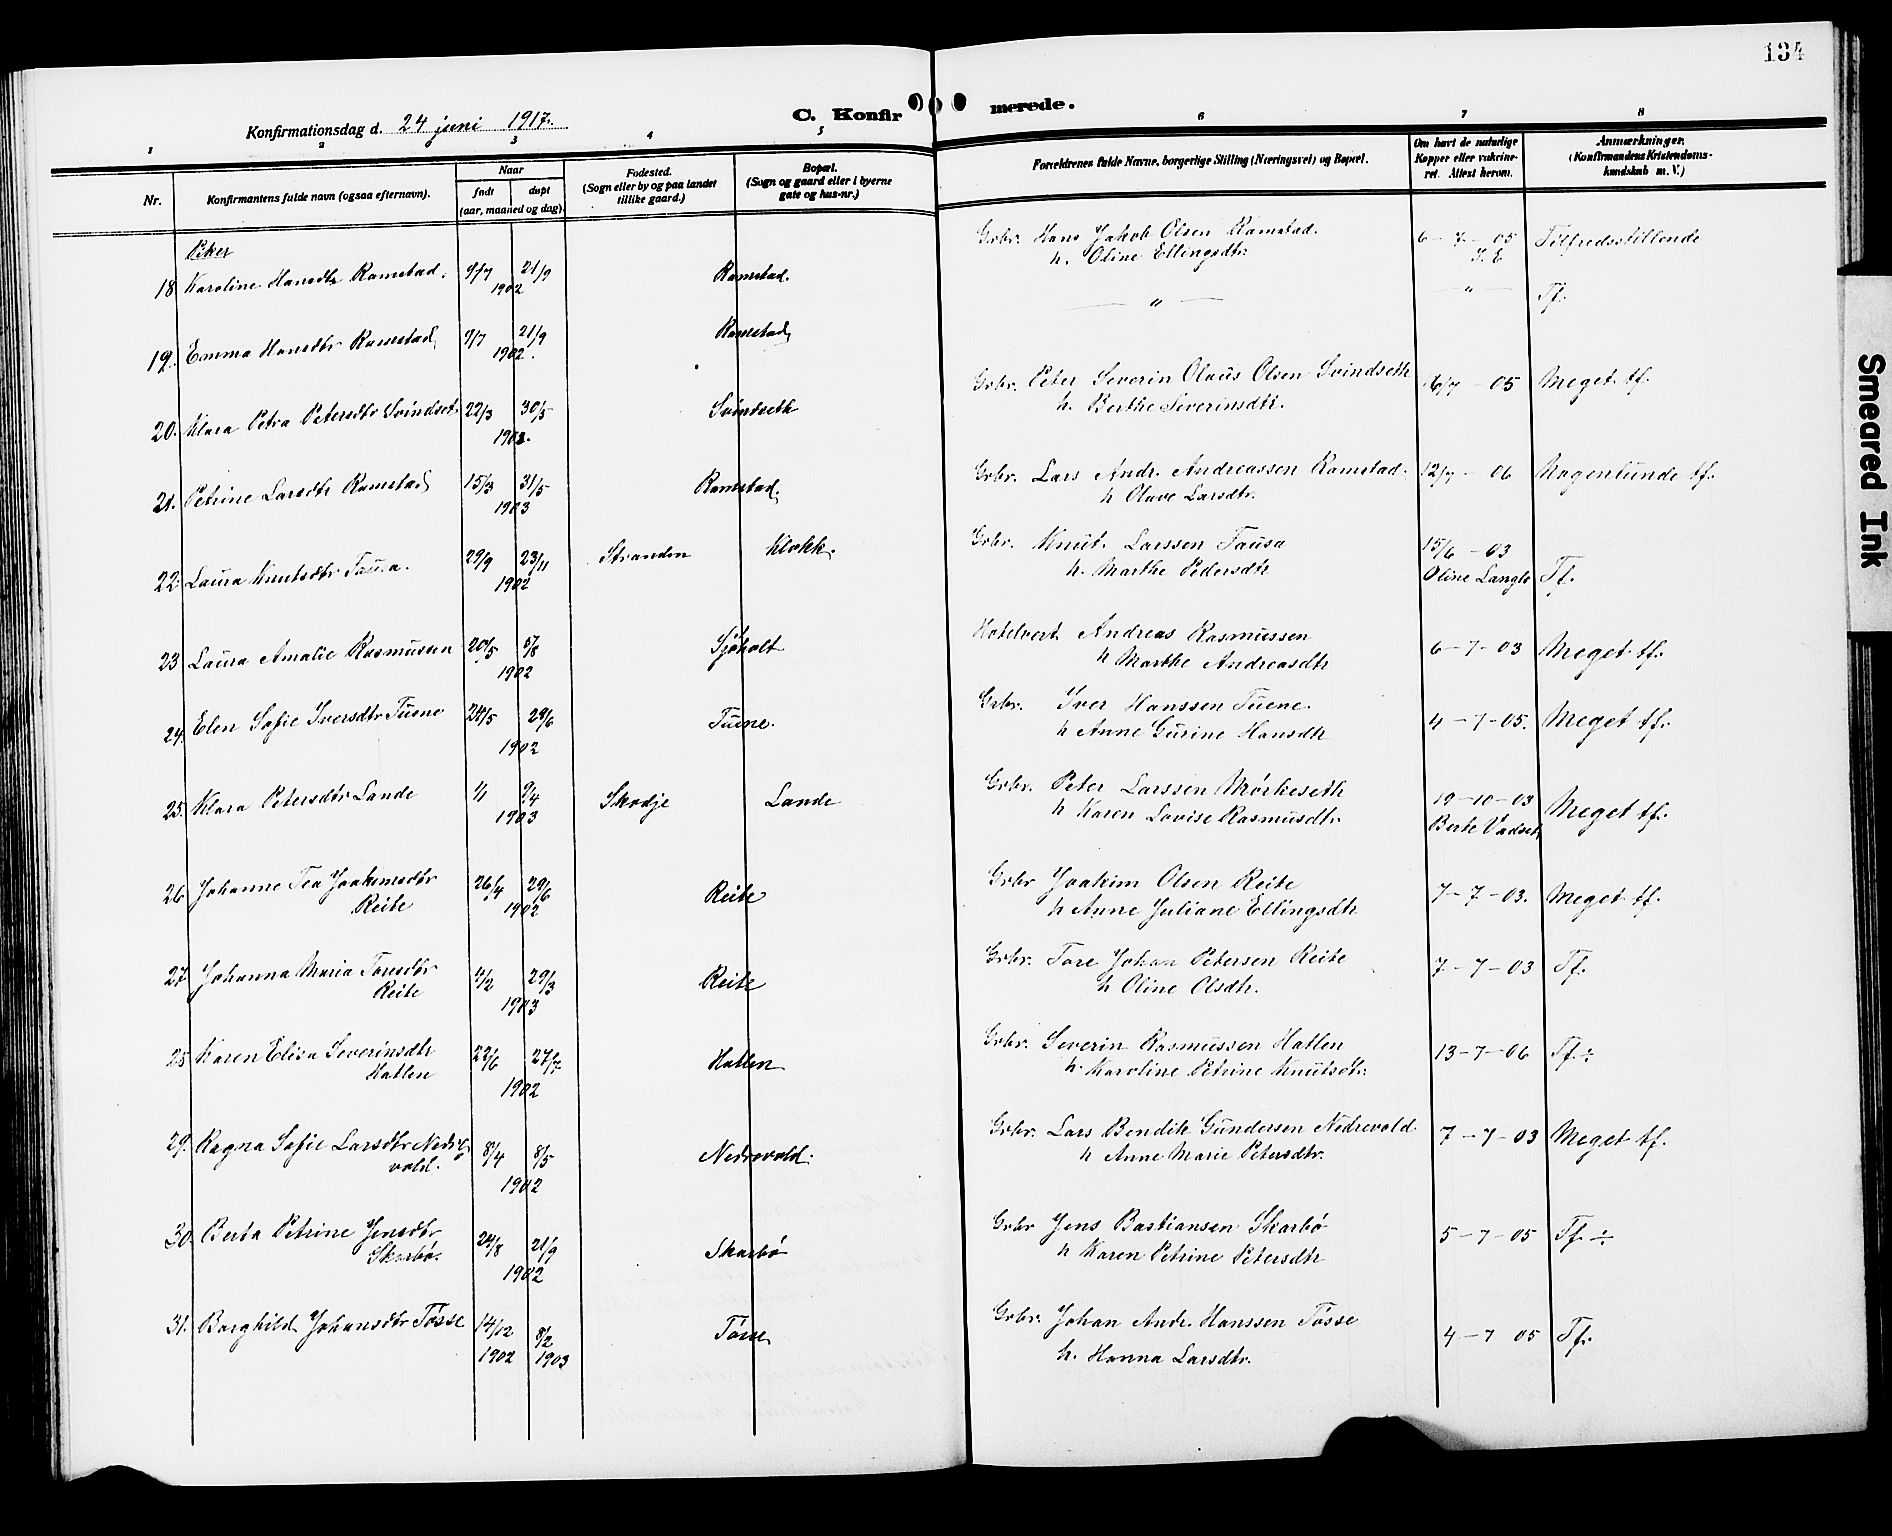 134
C. Konfirmerede.
Konfirmationsdag d. 24 juni 1917.
1 2 3 4 5 6 7 8
Nr.
Konfirmantens fulde navn (ogsaa efternavn).
Naar
født døpt
(aar, maaned og dag).
Fødested.
(Sogn eller by og paa landet
tillike gaard.)
Bopæl.
(Sogn og gaard eller i byerne
gate og hus-nr.)
Forældrenes fulde Navne, borgerlige Stilling (Næringsvei) og Bopæl.
Om havt de naturlige
Kopper eller vakcine-
ret. Attest herom.
Anmærkninger.
(Konfirmandens Kristendoms-
kundskab m. V.)
Piker
18 Karoline Hansdtr Ramstad. 9/7 21/9 1902 Ramstad. Grbr. Hans Jakob Olsen Ramstad. 6-7-05 Tilfredsstillende
h. Oline Ellingsdtr.
19. Emma Hansdtr Ramstad 9/7 21/9 1902. Ramstad — " — — " — Tf.
20. Klara Petra Petersdtr Svindset 22/3 30/5 Svindseth Grbr. Peter Severin Olaus Olsen Svindseth 6/7 - 05 Meget tf.
h. Berthe Severinsdtr.
21. Petrine Larsdtr Ramstad 15/3 31/5 1903 Ramstad. Grbr. Lars Andr. Andreassen Ramstad. 12/7 - 06 Nogenlunde tf.
h Olave Larsdtr.
22. Laura Knutsdtr Fausa. 29/9 23/11 1902 Stranden Klokk. Grbr. Knut Larssen Fausa 15/6 - 03
h. Marthe Pedersdtr Oline Langlo Tf.
23 Laura Amalie Rasmussen 20/5 1902 Sjøholt Hotelvert Andreas Rasmussen 6-7-03 Meget tf.
h Marthe Andreasdtr
24. Elen Sofie Iversdtr Tuene 24/5 29/6 1902 Tuene. Grbr. Iver Hanssen Tuene. 4-7-05. Meget tf.
h Anne Gurine Hansdtr
25. Klara Petersdtr Lande 1903 Skodje Lande Grbr. Peter Larssen Mørkeseth 19-10-03 Meget tf.
h Karen Lovise Rasmusdtr. Berte Vadset
26 Johanne Tea Joakimsdtr 26/4 29/6 1902 Reite Grbr Joakim Olsen Reite 7-7-03. Meget tf.
Reite h Anne Juliane Ellingsdtr
27. Johanna Maria Toresdtr 4/2 29/3 1903 Reite Grbr. Tore Johan Petersen Reite 7-7-03 Tf.
Reite h Oline Olsdtr.
28 Karen Elisa Severinsdtr 22/6 27/7 1902 Hatlen Grbr. Severin Rasmussen Hatlen 13-7-06 Tf ÷
Hatlen h. Karoline Petrine Knutsdtr.
29. Ragna Sofie Larsdtr Nedre- 8/4 8/5 1902 Nedrevold. Grbr. Lars Bendik Gundersen Nedrevold. 7-7-03 Meget tf.
vold. h Anne Marie Petersdtr.
30. Berta Petrine Jensdtr 24/8 21/9 1902 Skarbø Grbr Jens Bastiansen Skarbø 5-7-05 Tf. ÷
Skarbø. h Karen Petrine Petersdtr
31. Borghild Johansdtr Tøsse 14/12 1902 8/2 1903 Tøsse Grbr. Johan Andr. Hanssen Tøsse 4-7 05 Tf.
h. Hanna Larsdtr.
Smeared Ink